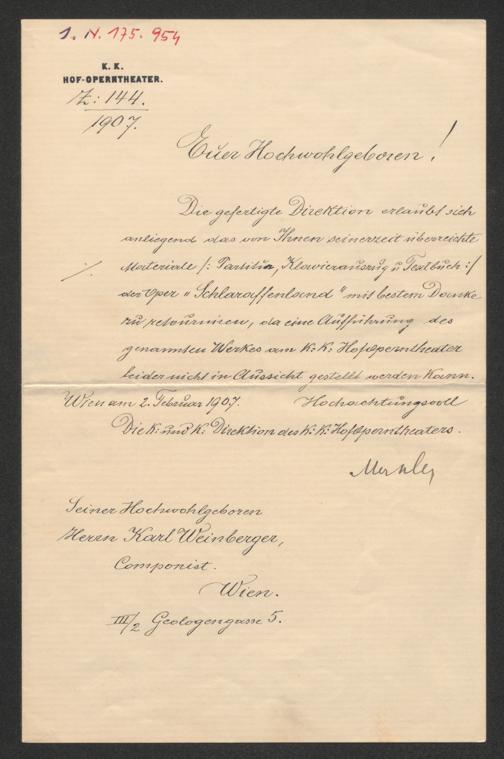 1. N. 175.954
K. K.
HOF-OPERNTHEATER.
Z: 144.
1907.
Euer Hochwohlgeboren!
Die gefertigte Direktion erlaubt sich
anliegend das von Ihnen seinerzeit überreichte
./. Materiale /: Partitur, Klavierauszug u Textbuch :/
der Oper „Schlaraffenland" mit bestem Danke
zu retournieren, da eine Aufführung des
genannten Werkes am K: K: Hofoperntheater
leider nicht in Aussicht gestellt werden kann.
Wien am 2. Februar 1907. Hochachtungsvoll
Die K: und K: Direktion des K: K: Hofoperntheaters.
Seiner Hochwohlgeboren
Herrn Karl Weinberger,
Componist.
Wien.
III/2 Geologengasse 5.